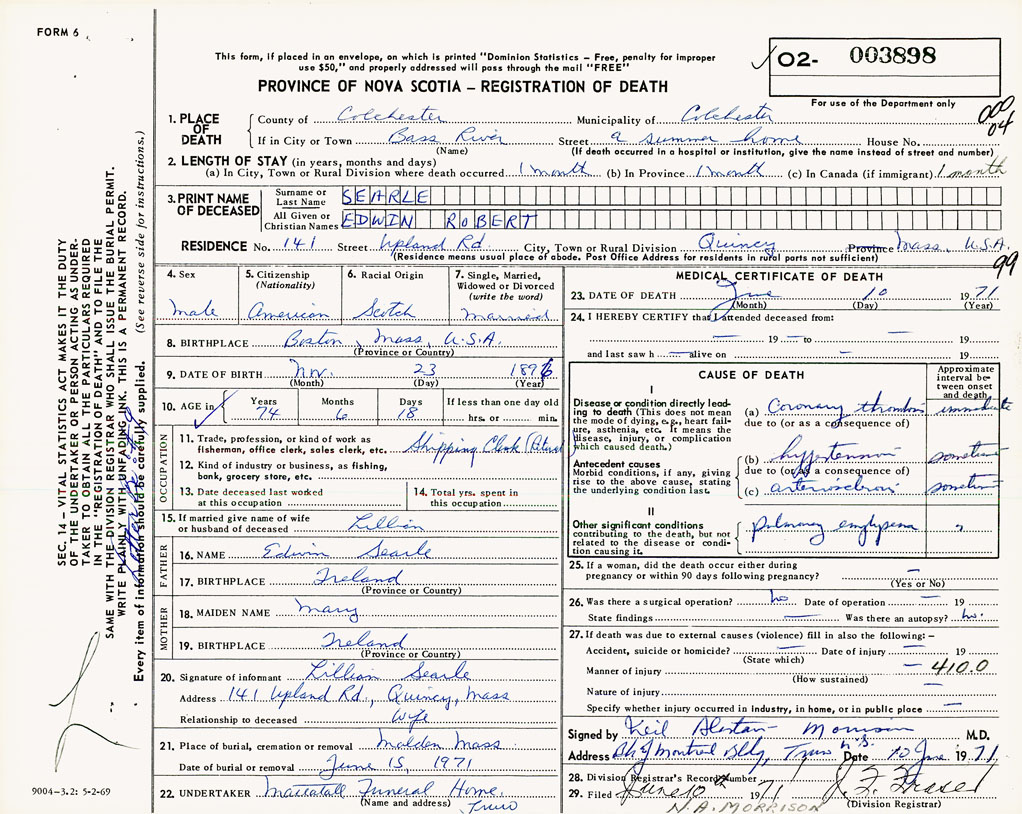 FORM 6
This form, if placed in an envelope, on which is printed "Dominion Statistics — Free, penalty for improper
use $50," and properly addressed will pass through the mail "FREE"
02- 003898
For use of the Department only
PROVINCE OF NOVA SCOTIA — REGISTRATION OF DEATH
000
04
1. PLACE OF DEATH
County of Colchester Municipality of Colchester
If in City or Town Bass River Street a summer home House No.
(Name) (If death occurred in a hospital or institution, give the name instead of street and number)
2. LENGTH OF STAY (in years, months and days)
(a) In City, Town or Rural Division where death occurred 1 month (b) In Province 1 month (c) In Canada (if immigrant) 1 month
3. PRINT NAME OF DECEASED
Surname or Last Name SEARLE
All Given or Christian Names EDWIN ROBERT
RESIDENCE No. 141 Street Upland Rd. City, Town or Rural Division Quincy Province Mass, U.S.A.
(Residence means usual place of abode. Post Office Address for residents in rural parts not sufficient)
99
4. Sex
male
5. Citizenship
(Nationality)
American
6. Racial Origin
Scotch
7. Single, Married,
Widowed or Divorced
(write the word)
married
8. BIRTHPLACE Boston, Mass, U.S.A.
(Province or Country)
9. DATE OF BIRTH Nov. 23 1896
(Month) (Day) (Year)
10. AGE in
Years Months Days If less than one day
74 6 18 hrs. or min.
OCCUPATION
11. Trade, profession, or kind of work as
fisherman, office clerk, sales clerk, etc. Shipping Clerk
12. Kind of industry or business, as fishing,
bank, grocery store, etc.
13. Date deceased last worked
at this occupation
14. Total yrs. spent in
this occupation
15. If married give name of wife
or husband of deceased Lillian
FATHER
16. NAME Edwin Searle
17. BIRTHPLACE Ireland
(Province or Country)
MOTHER
18. MAIDEN NAME Mary
19. BIRTHPLACE Ireland
(Province or Country)
20. Signature of informant Lillian Searle
Address 141 Upland Rd., Quincy, Mass
Relationship to deceased Wife
21. Place of burial, cremation or removal Malden Mass
Date of burial or removal June 15, 1971
22. UNDERTAKER Mattatall Funeral Home
(Name and address) Truro
MEDICAL CERTIFICATE OF DEATH
23. DATE OF DEATH June 10 1971
(Month) (Day) (Year)
24. I HEREBY CERTIFY that I attended deceased from:
— 19 — to — 19
and last saw h — alive on — 19
CAUSE OF DEATH
Approximate
interval be-
tween onset
and death
I
Disease or condition directly lead-
ing to death (This does not mean
the mode of dying, e.g., heart fail-
ure, asthenia, etc. It means the
disease, injury, or complication
which caused death.)
(a) Coronary thrombosis immediate
due to (or as a consequence of)
Antecedent causes
Morbid conditions, if any, giving
rise to the above cause, stating
the underlying condition last.
(b) hypertension sometime
due to (or as a consequence of)
(c) arteriosclerosis sometime
II
Other significant conditions
contributing to the death, but not
related to the disease or condi-
tion causing it.
pulmonary emphysema "
25. If a woman, did the death occur either during
pregnancy or within 90 days following pregnancy? —
(Yes or No)
26. Was there a surgical operation? no Date of operation — 19
State findings — Was there an autopsy? no.
27. If death was due to external causes (violence) fill in also the following: —
Accident, suicide or homicide? — Date of injury — 19
(State which)
Manner of injury — 410.0
(How sustained)
Nature of injury —
Specify whether injury occurred in industry, in home, or in public place —
Signed by Neil Alastair Morrison M.D.
Address Bk of Montreal Bldg, Truro N.S. Date 10 June 1971
28. Division Registrar's Record Number
29. Filed June 10th 1971 J. F. Fraser
(Division Registrar)
N.A. MORRISON
9004-3.2: 5-2-69
SEC. 14 — VITAL STATISTICS ACT MAKES IT THE DUTY
OF THE UNDERTAKER OR PERSON ACTING AS UNDER-
TAKER TO OBTAIN ALL THE PARTICULARS REQUIRED
IN THE "REGISTRATION OF DEATH" AND TO FILE THE
SAME WITH THE DIVISION REGISTRAR WHO SHALL ISSUE THE BURIAL PERMIT.
WRITE PLAINLY WITH UNFADING INK. THIS IS A PERMANENT RECORD.
Every item of information should be carefully supplied. (See reverse side for instructions.)